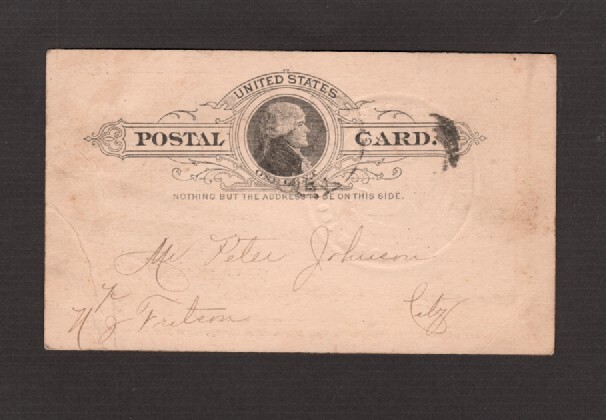 UNITED STATES
POSTAL CARD.
ONE CENT
NOTHING BUT THE ADDRESS TO BE ON THIS SIDE.
Mr Peter Johnson
City